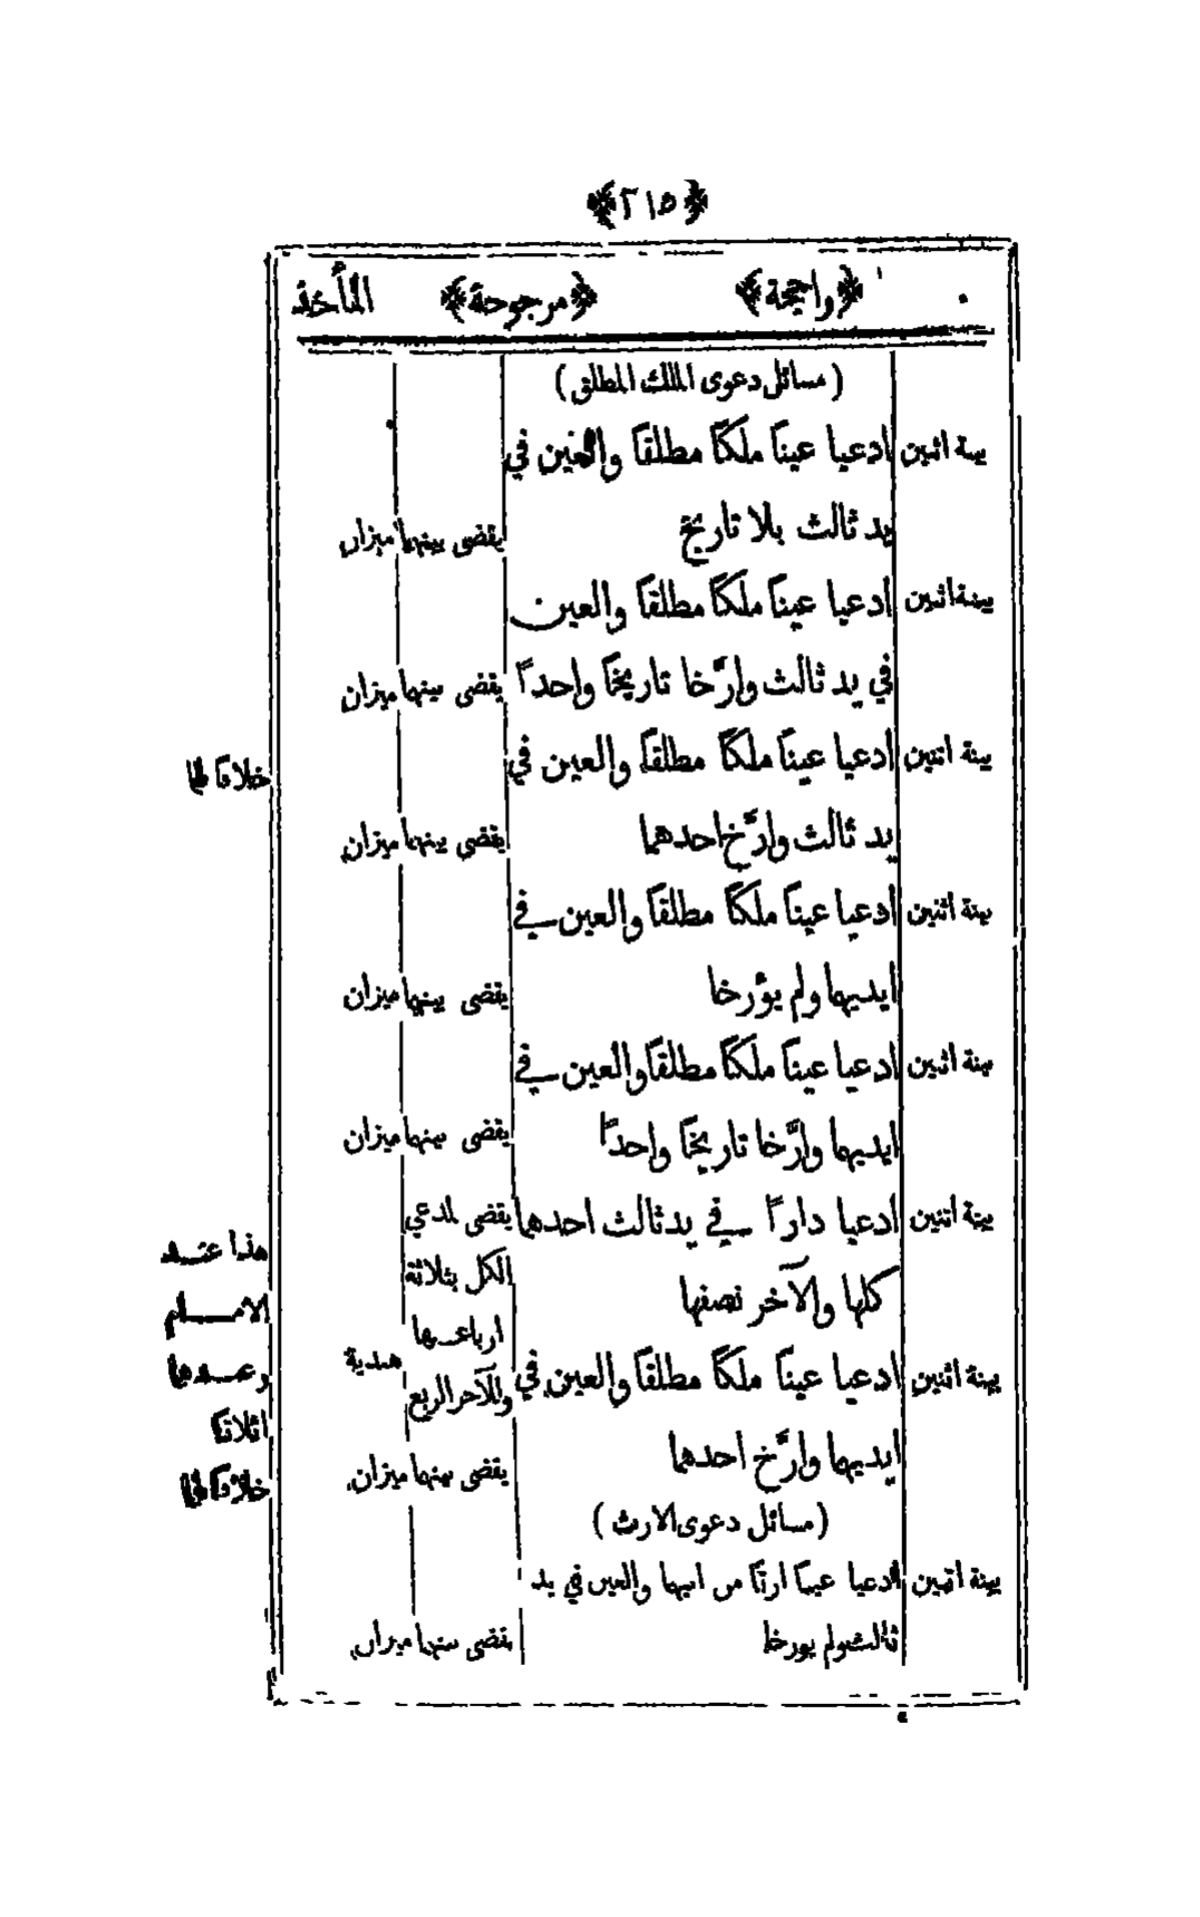 ﴿٢١٥﴾
﴿راجحة﴾ ﴿مرجوحة﴾ المأخذ
(مسائل دعوى الملك المطلق)
بينة اثنين ادعيا عينًا ملكًا مطلقًا والعين في
يد ثالث بلا تاريخ يقضى بينهما ميزان
بينة اثنين ادعيا عينًا ملكًا مطلقًا والعين
في يد ثالث وارّخا تاريخًا واحدًا يقضى بينهما ميزان
بينة اثنين ادعيا عينًا ملكًا مطلقًا والعين في خلافا لهما
يد ثالث وارّخ احدهما يقضى بينهما ميزان
بينة اثنين ادعيا عينًا ملكًا مطلقًا والعين في
ايديهما ولم يؤرخا يقضى بينهما ميزان
بينة اثنين ادعيا عينًا ملكًا مطلقًا والعين في
ايديهما وارّخا تاريخًا واحدًا يقضى بينهما ميزان
بينة اثنين ادعيا دارًا في يد ثالث احدهما يقضى لمدعي هذا عند
كلها والآخر نصفها الكل بثلاثة الامام
ارباعها هندية
بينة اثنين ادعيا عينًا ملكًا مطلقًا والعين في وللآخر الربع وعندهما
اثلاثا
ايديهما وارّخ احدهما يقضى بينهما ميزان خلافا لهما
(مسائل دعوى الارث)
بينة اثنين ادعيا عينا ارثا من ابيهما والعين في يد
ثالث ولم يورخا يقضى بينهما ميزان